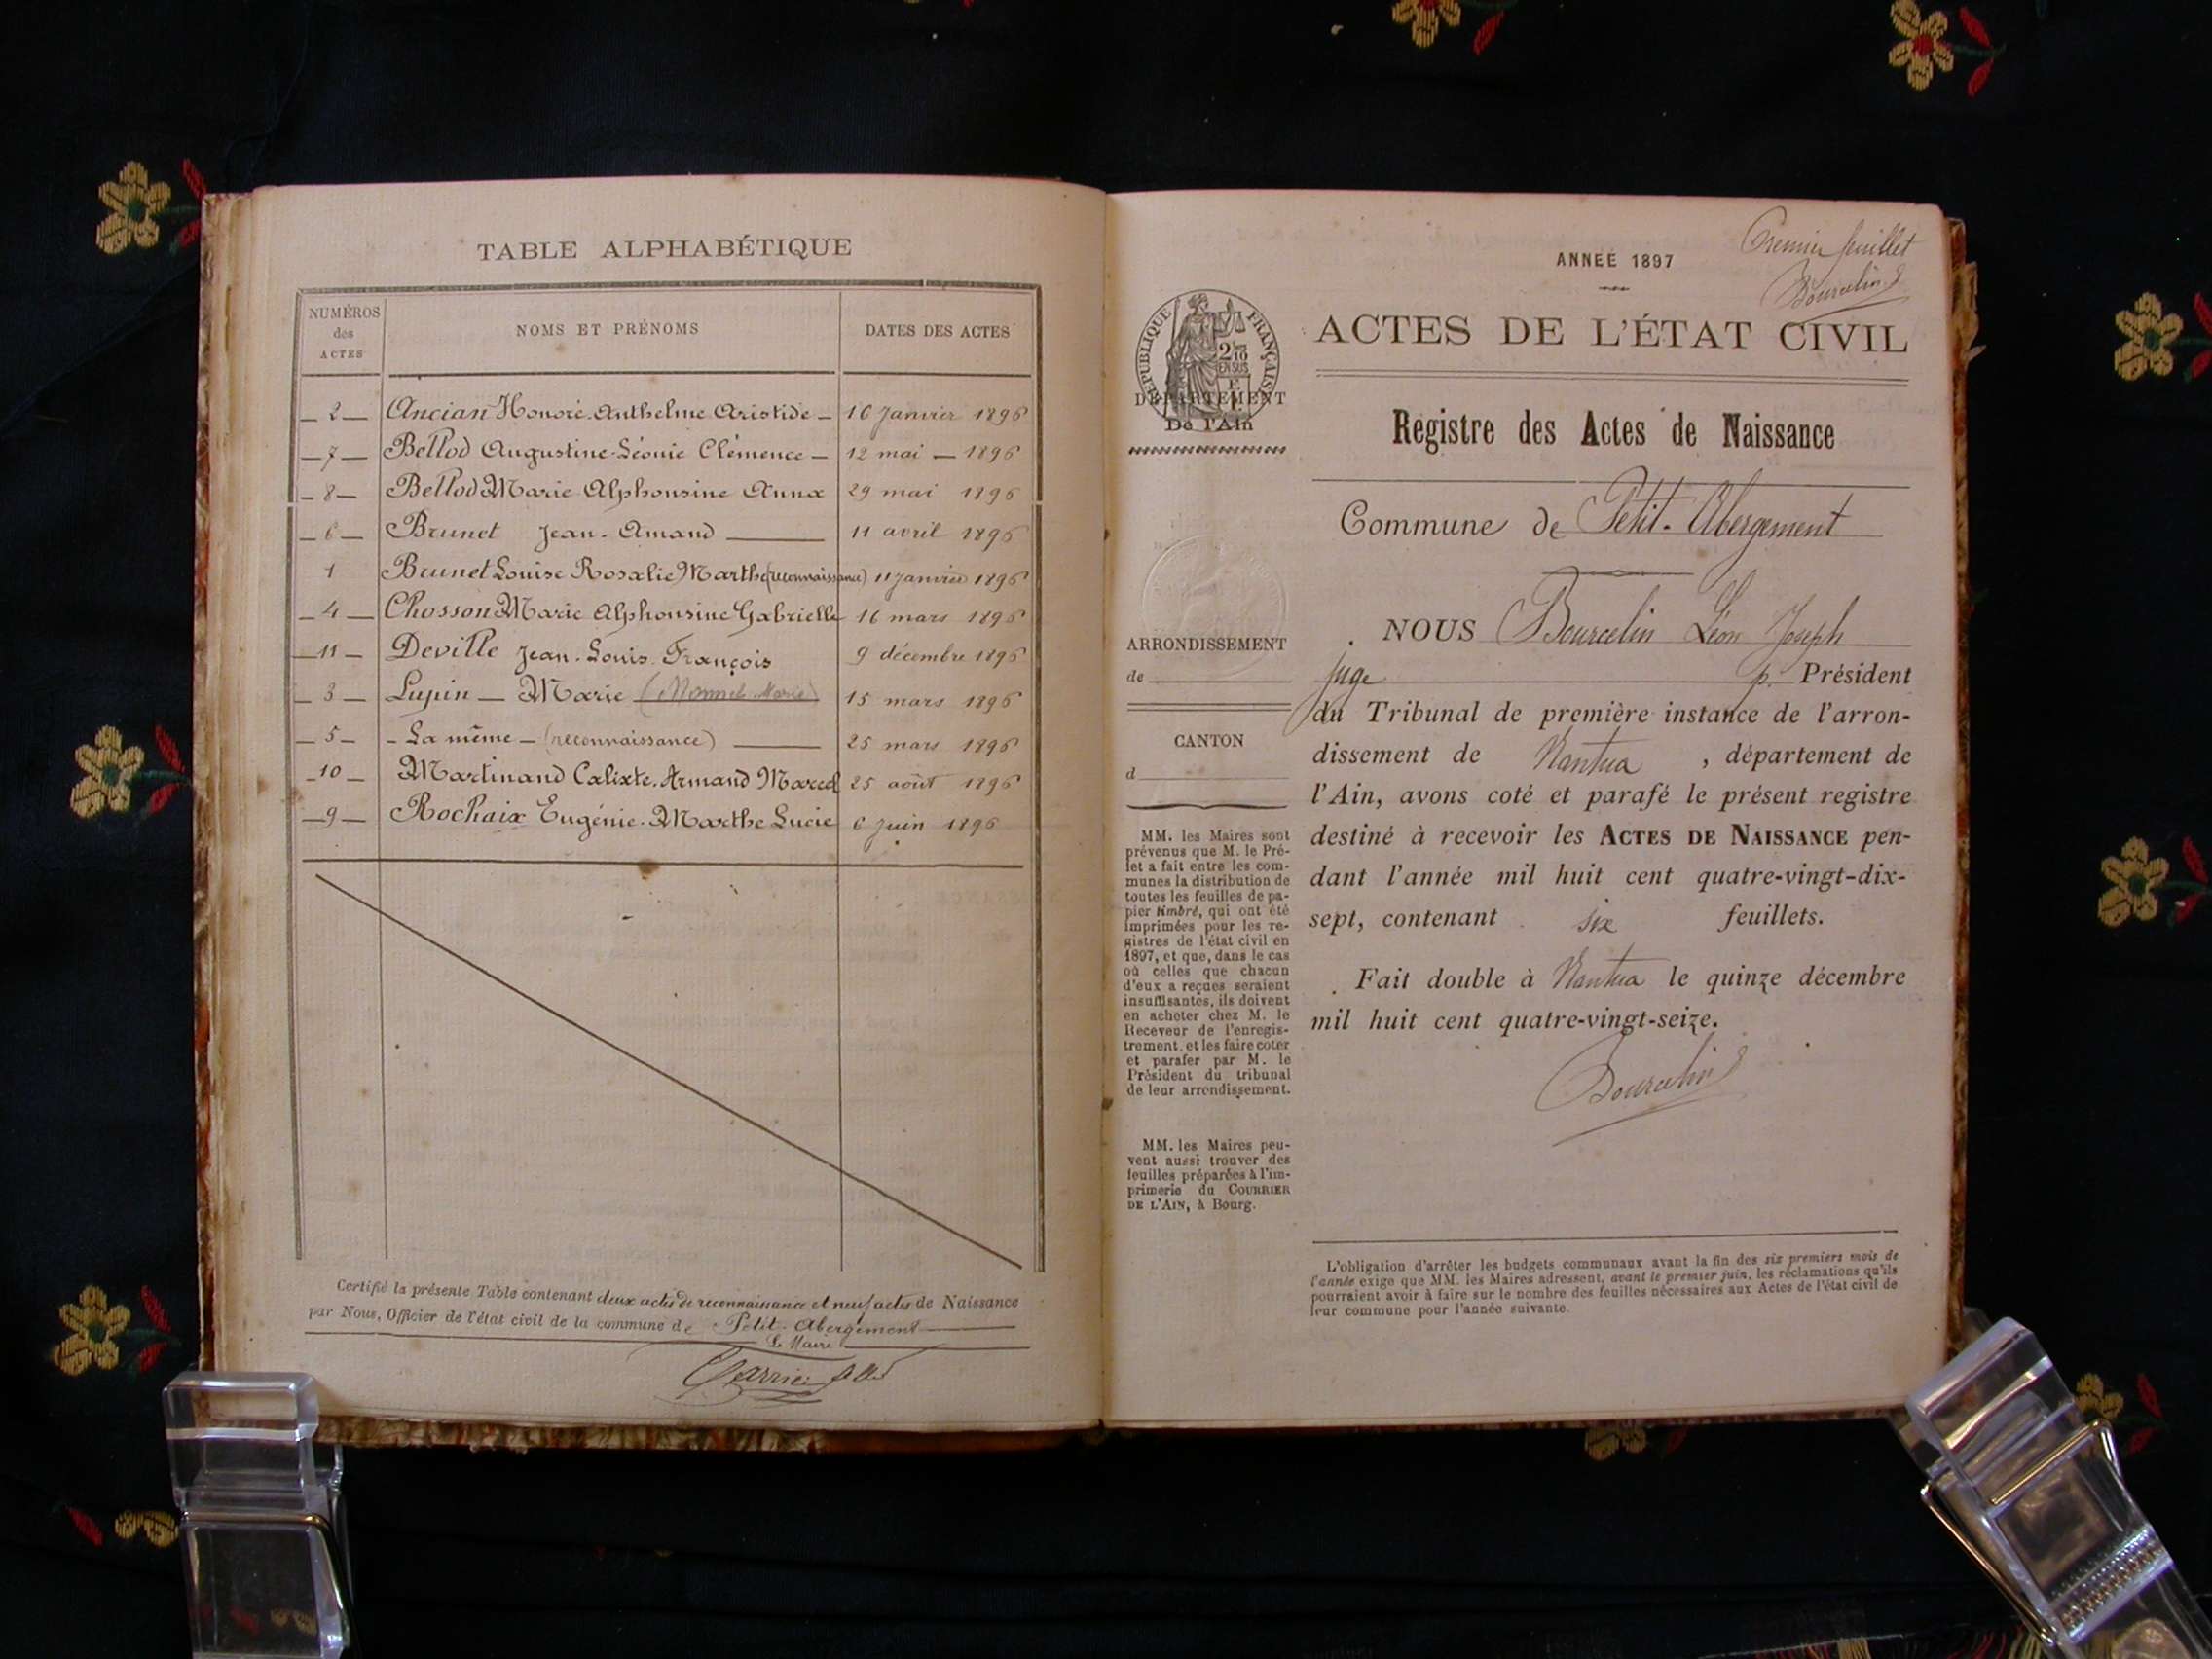 TABLE ALPHABÉTIQUE
NUMÉROS
des
ACTES
NOMS ET PRÉNOMS
DATES DES ACTES
2 Ancian Honoré Anthelme Aristide 16 Janvier 1896
7 Bellod Augustine Léonie Clémence 12 mai 1896
8 Bellod Marie Alphonsine Anna 29 mai 1896
6 Brunet Jean-Amand 11 avril 1896
1 Brunet Louise Rosalie Marthe (reconnaissance) 11 Janvier 1896
4 Chosson Marie Alphonsine Gabrielle 16 mars 1896
11 Deville Jean-Louis François 9 décembre 1896
3 Lupin Marie 15 mars 1896
5 La même (reconnaissance) 25 mars 1896
10 Martinand Calixte Armand Marcel 25 août 1896
9 Rochaix Eugénie Marthe Lucie 6 Juin 1896
Certifié la présente Table contenant deux actes de reconnaissance et neuf actes de Naissance
par Nous, Officier de l'état civil de la commune de Petit-Abergement
Le Maire
Premier feuillet
Bourcelin
ANNÉE 1897
RÉPUBLIQUE FRANÇAISE
2/10
EN SUS
DÉPARTEMENT
De l'Ain
ACTES DE L'ÉTAT CIVIL
Registre des Actes de Naissance
Commune de Petit-Abergement
ARRONDISSEMENT
de
CANTON
d
NOUS Bourcelin Léon Joseph
juge p. Président
du Tribunal de première instance de l'arron-
dissement de Nantua, département de
l'Ain, avons coté et parafé le présent registre
destiné à recevoir les ACTES DE NAISSANCE pen-
dant l'année mil huit cent quatre-vingt-dix-
sept, contenant six feuillets.
Fait double à Nantua le quinze décembre
mil huit cent quatre-vingt-seize.
Bourcelin
MM. les Maires sont
prévenus que M. le Pré-
fet a fait entre les com-
munes la distribution de
toutes les feuilles de pa-
pier timbré, qui ont été
imprimées pour les re-
gistres de l'état civil en
1897, et que, dans le cas
où celles que chacun
d'eux a reçues seraient
insuffisantes, ils doivent
en acheter chez M. le
Receveur de l'enregis-
trement, et les faire coter
et parafer par M. le
Président du tribunal
de leur arrondissement.
MM. les Maires peu-
vent aussi trouver des
feuilles préparées à l'im-
primerie du COURRIER
DE L'AIN, à Bourg.
L'obligation d'arrêter les budgets communaux avant la fin des six premiers mois de
l'année exige que MM. les Maires adressent, avant le premier juin, les réclamations qu'ils
pourraient avoir à faire sur le nombre des feuilles nécessaires aux Actes de l'état civil de
leur commune pour l'année suivante.